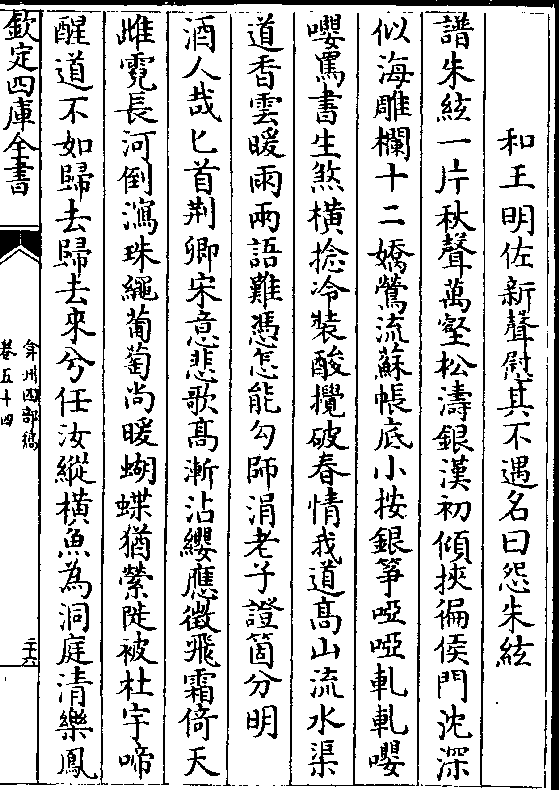 和王明佐新聲慰其不遇名曰怨朱絃
譜朱絃一片秋聲萬壑松濤銀漢初傾挾徧侯門沈深
似海雕欄十二嬌鶯流蘇帳底小按銀箏啞啞軋軋嚶
嚶罵書生煞橫捻冷裝酸攪破春情我道高山流水渠
道香雲暖雨兩語難憑怎能勾師涓老子證箇分明
酒人哉匕首荆卿宋意悲歌高漸沾纓應徵飛霜倚天
雌霓長河倒瀉珠繩葡萄尚暖蝴蝶猶縈陡被杜宇啼
醒道不如歸去歸去來兮任汝縱橫魚為洞庭清樂鳳
欽定四庫全書
弇州四部稿
卷五十四
二十六